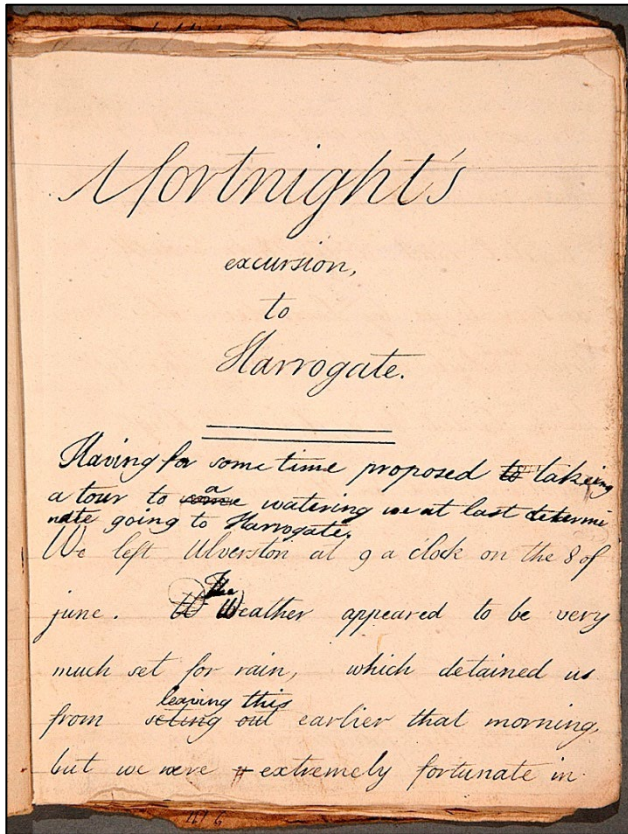 A fortnight's
excursion,
to
Harrogate.
Having for some time proposed to takeing
a tour to some a watering we at last determi
nate going to Harrogate.
We left Ulverston at 9 a clock on the 8 of
june. W The Weather appeared to be very
much set for rain, which detained us
leaving this
from seting out earlier that morning,
but we were extremely fortunate in